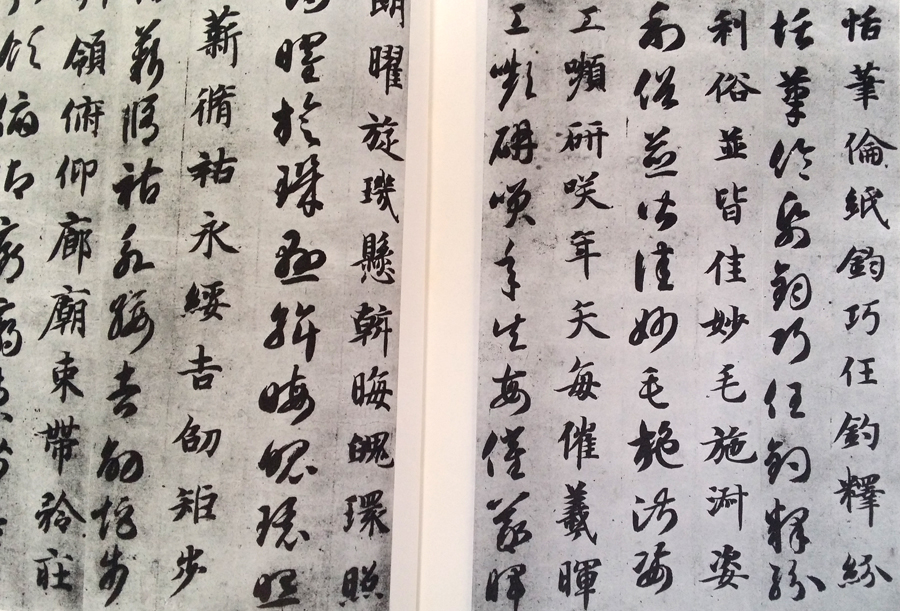 恬筆倫紙鈞巧任釣釋紛
恬筆倫紙鈞巧任釣釋紛
利俗並皆佳妙毛施淑姿
利俗並皆佳妙毛施淑姿
工嚬研咲年矢每催羲暉
工嚬研咲年矢每催羲暉
朗曜旋璣懸斡晦魄環照
朗曜旋璣懸斡晦魄環照
薪脩祜永綏吉劭矩步
薪脩祜永綏吉劭矩步
引領俯仰廊廟束帶矜莊
領俯仰廊廟束